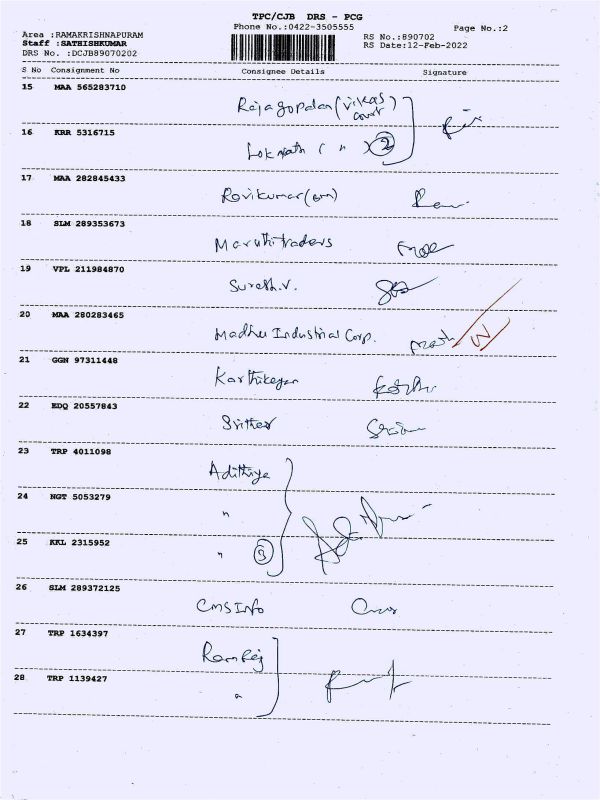 TPC/CJB DRS - PCG
Phone No.:0422-3505555
Page No.:2
Area :RAMAKRISHNAPURAM
Staff :SATHISHKUMAR
DRS No. :DCJB89070202
RS No.:890702
RS Date:12-Feb-2022
S No Consignment No Consignee Details Signature
15 MAA 565283710
Rajagopalan (vikas court)
16 KRR 5316715
Loknath ( " ) 2
17 MAA 282845433
Ravikumar
18 SLM 289353673
Maruthi traders
19 VPL 211984870
Suresh.V.
20 MAA 280283465
Madhu Industrial Corp.
21 GGN 97311448
Karthikeyan
22 EDQ 20557843
Srither
23 TRP 4011098
Adithiya
24 NGT 5053279
"
25 KKL 2315952
" 3
26 SLM 289372125
CMS Info
27 TRP 1634397
Ramraj
28 TRP 1139427
"